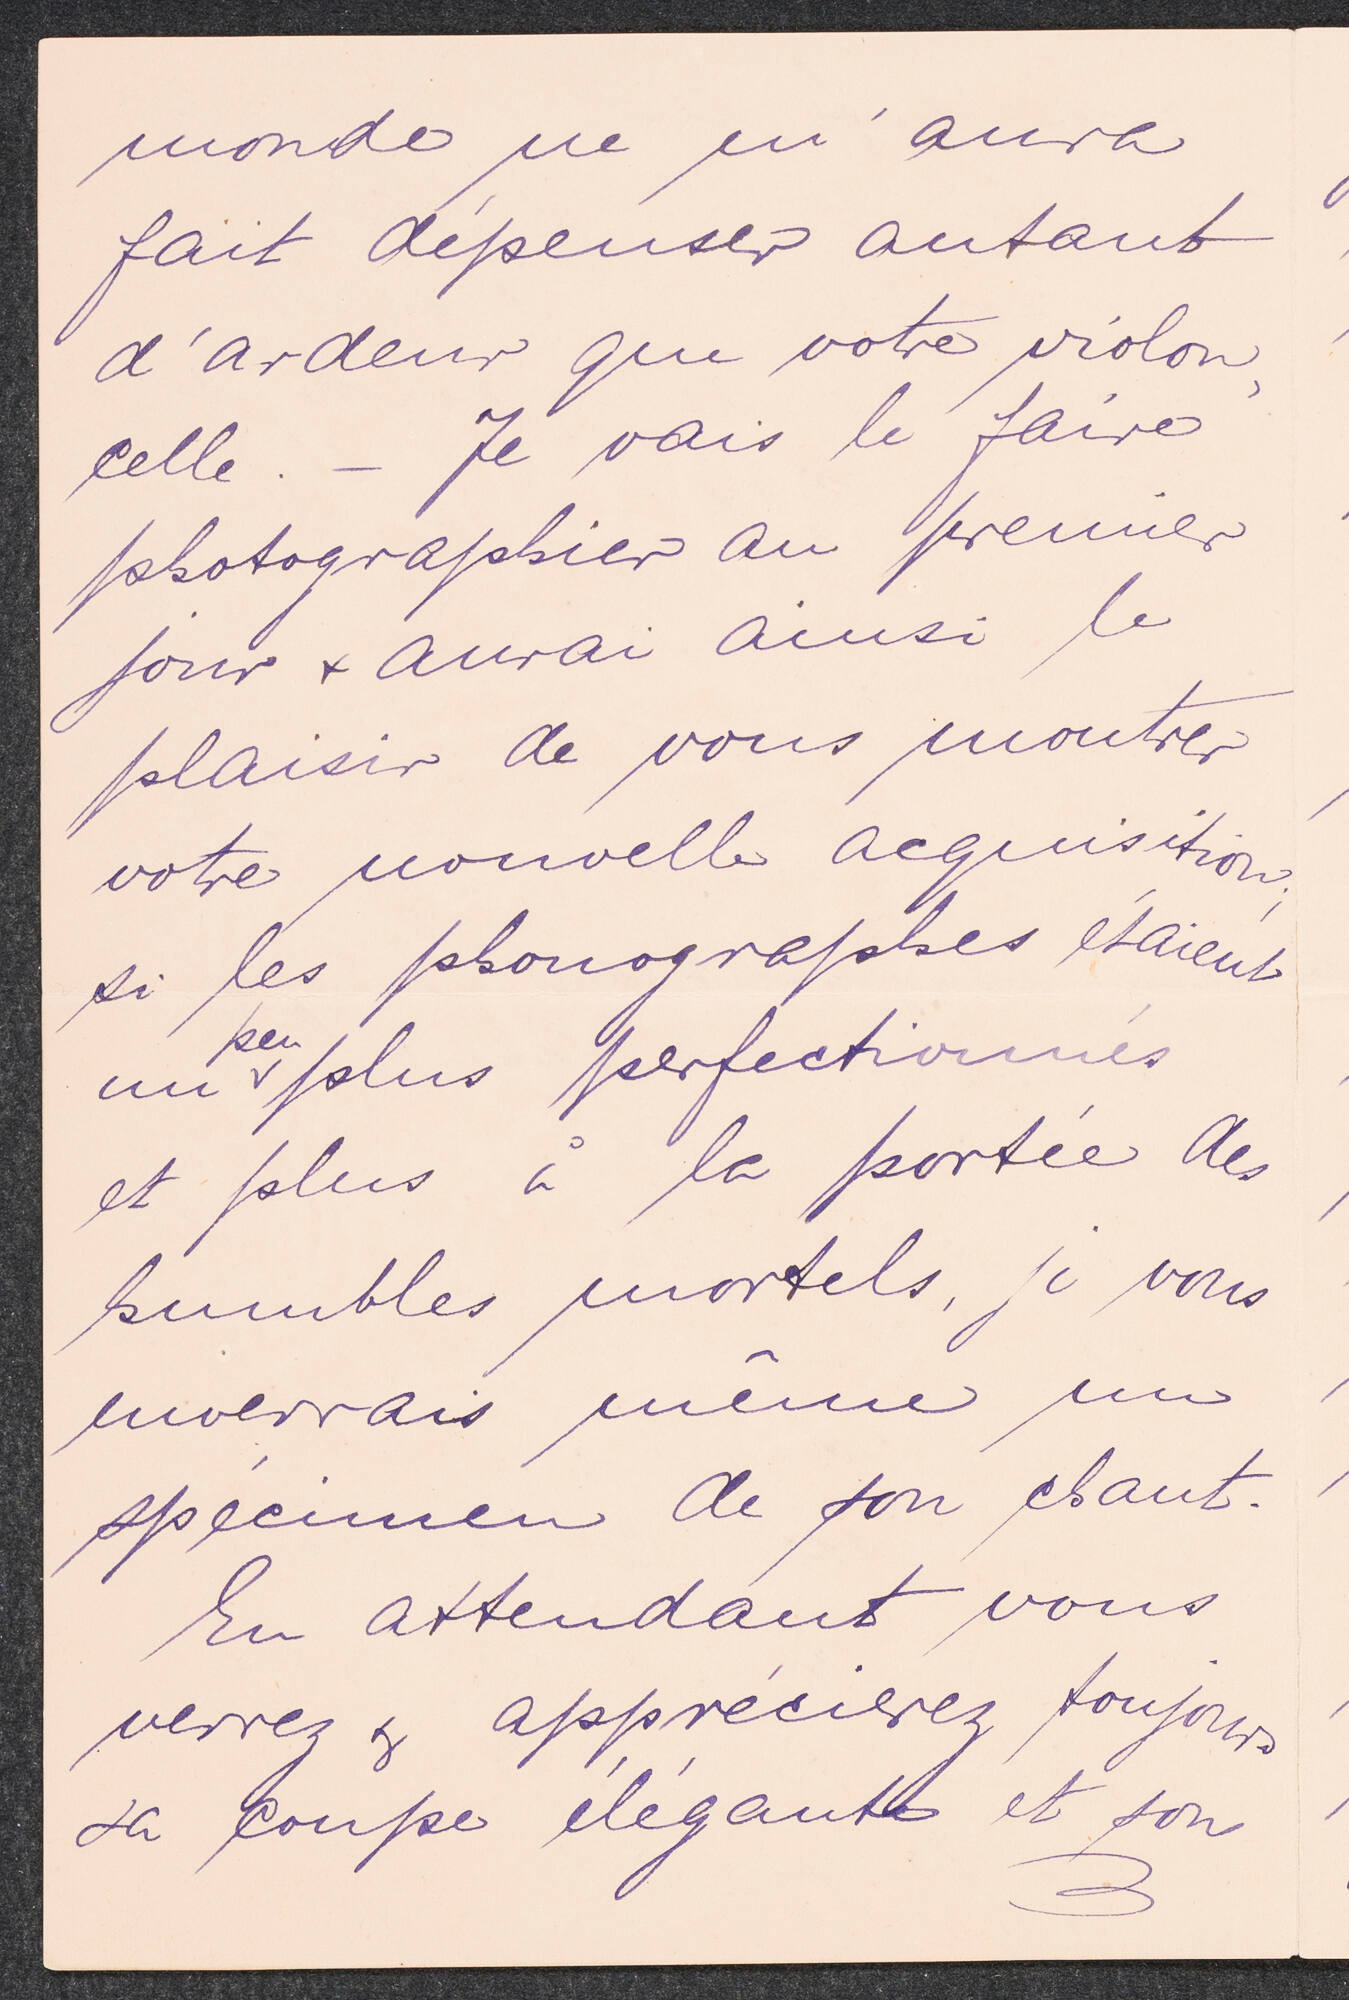 monde ne m'aura
fait dépenser autant
d'ardeur que votre violon,
celle. — Je vais le faire
photographier au premier
jour & aurai ainsi le
plaisir de vous montrer
votre nouvelle acquisition;
si les phonographes étaient
un peu plus perfectionnés
et plus à la portée des
humbles mortels, je vous
enverrais même un
spécimen de son chant.
En attendant vous
verrez & apprécierez toujours
sa coupe élégante et son